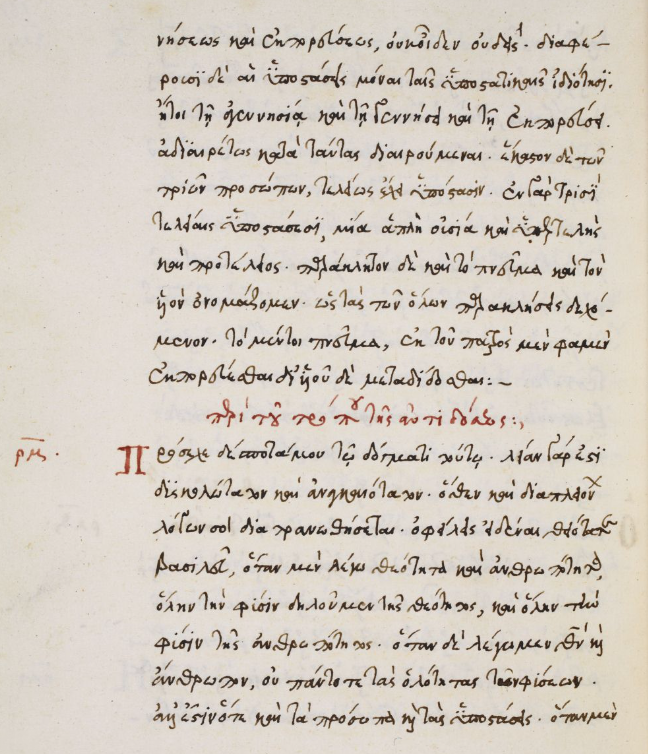 νήσεως καὶ ἐκπορεύσεως, οὐκ οἶδεν οὐδείς. διαφέ-
ρουσι δὲ αἱ ὑποστάσεις μόναι ταῖς ὑποστατικαῖς ἰδιότησι.
ἤτοι τῇ ἀγεννησίᾳ καὶ τῇ γεννήσει καὶ τῇ ἐκπορεύσει.
ἀδιαιρέτως κατὰ ταύτας διαιρούμεναι. ἕκαστον δὲ τῶν
τριῶν προσώπων, τελείως ἔχει ὑπόστασιν. ἐν γὰρ τρισὶ
τελείαις ὑποστάσεσι, μία ἁπλῆ οὐσία καὶ ὑπερτελὴς
καὶ προτέλειος. παράκλητον δὲ καὶ τὸ πνεῦμα καὶ τὸν
υἱὸν ὀνομάζομεν. ὡς τὰς τῶν ὅλων παρακλήσεις δεχό-
μενον. τὸ μέντοι πνεῦμα, ἐκ τοῦ πατρὸς μὲν φαμὲν
ἐκπορεύεσθαι δι' υἱοῦ δὲ μεταδίδοσθαι:-
περὶ τοῦ τρόπου τῆς ἀντιδόσεως:,
ρμ.
Πρόσεχε δέσποτά μου τῷ δόγματι τούτῳ. λίαν γάρ ἐστι
δυσκολώτατον καὶ ἀναγκαιότατον. ὅθεν καὶ διὰ πλειόνων
λόγων σοι διατρανωθήσεται. ὀφείλεις εἰδέναι, θειότατε
βασιλεῦ, ὅταν μὲν λέγω θεότητα καὶ ἀνθρωπότητα,
ὅλην τὴν φύσιν δηλοῦμεν τῆς θεότητος, καὶ ὅλην τὴν
φύσιν τῆς ἀνθρωπότητος. ὅταν δὲ λέγωμεν θεὸν καὶ
ἄνθρωπον, οὐ πάντοτε τὰς ὁλότητας τῶν φύσεων.
ἀλλ' ἔστιν ὅτε καὶ τὰ πρόσωπα καὶ τὰς ὑποστάσεις. ὅταν μὲν